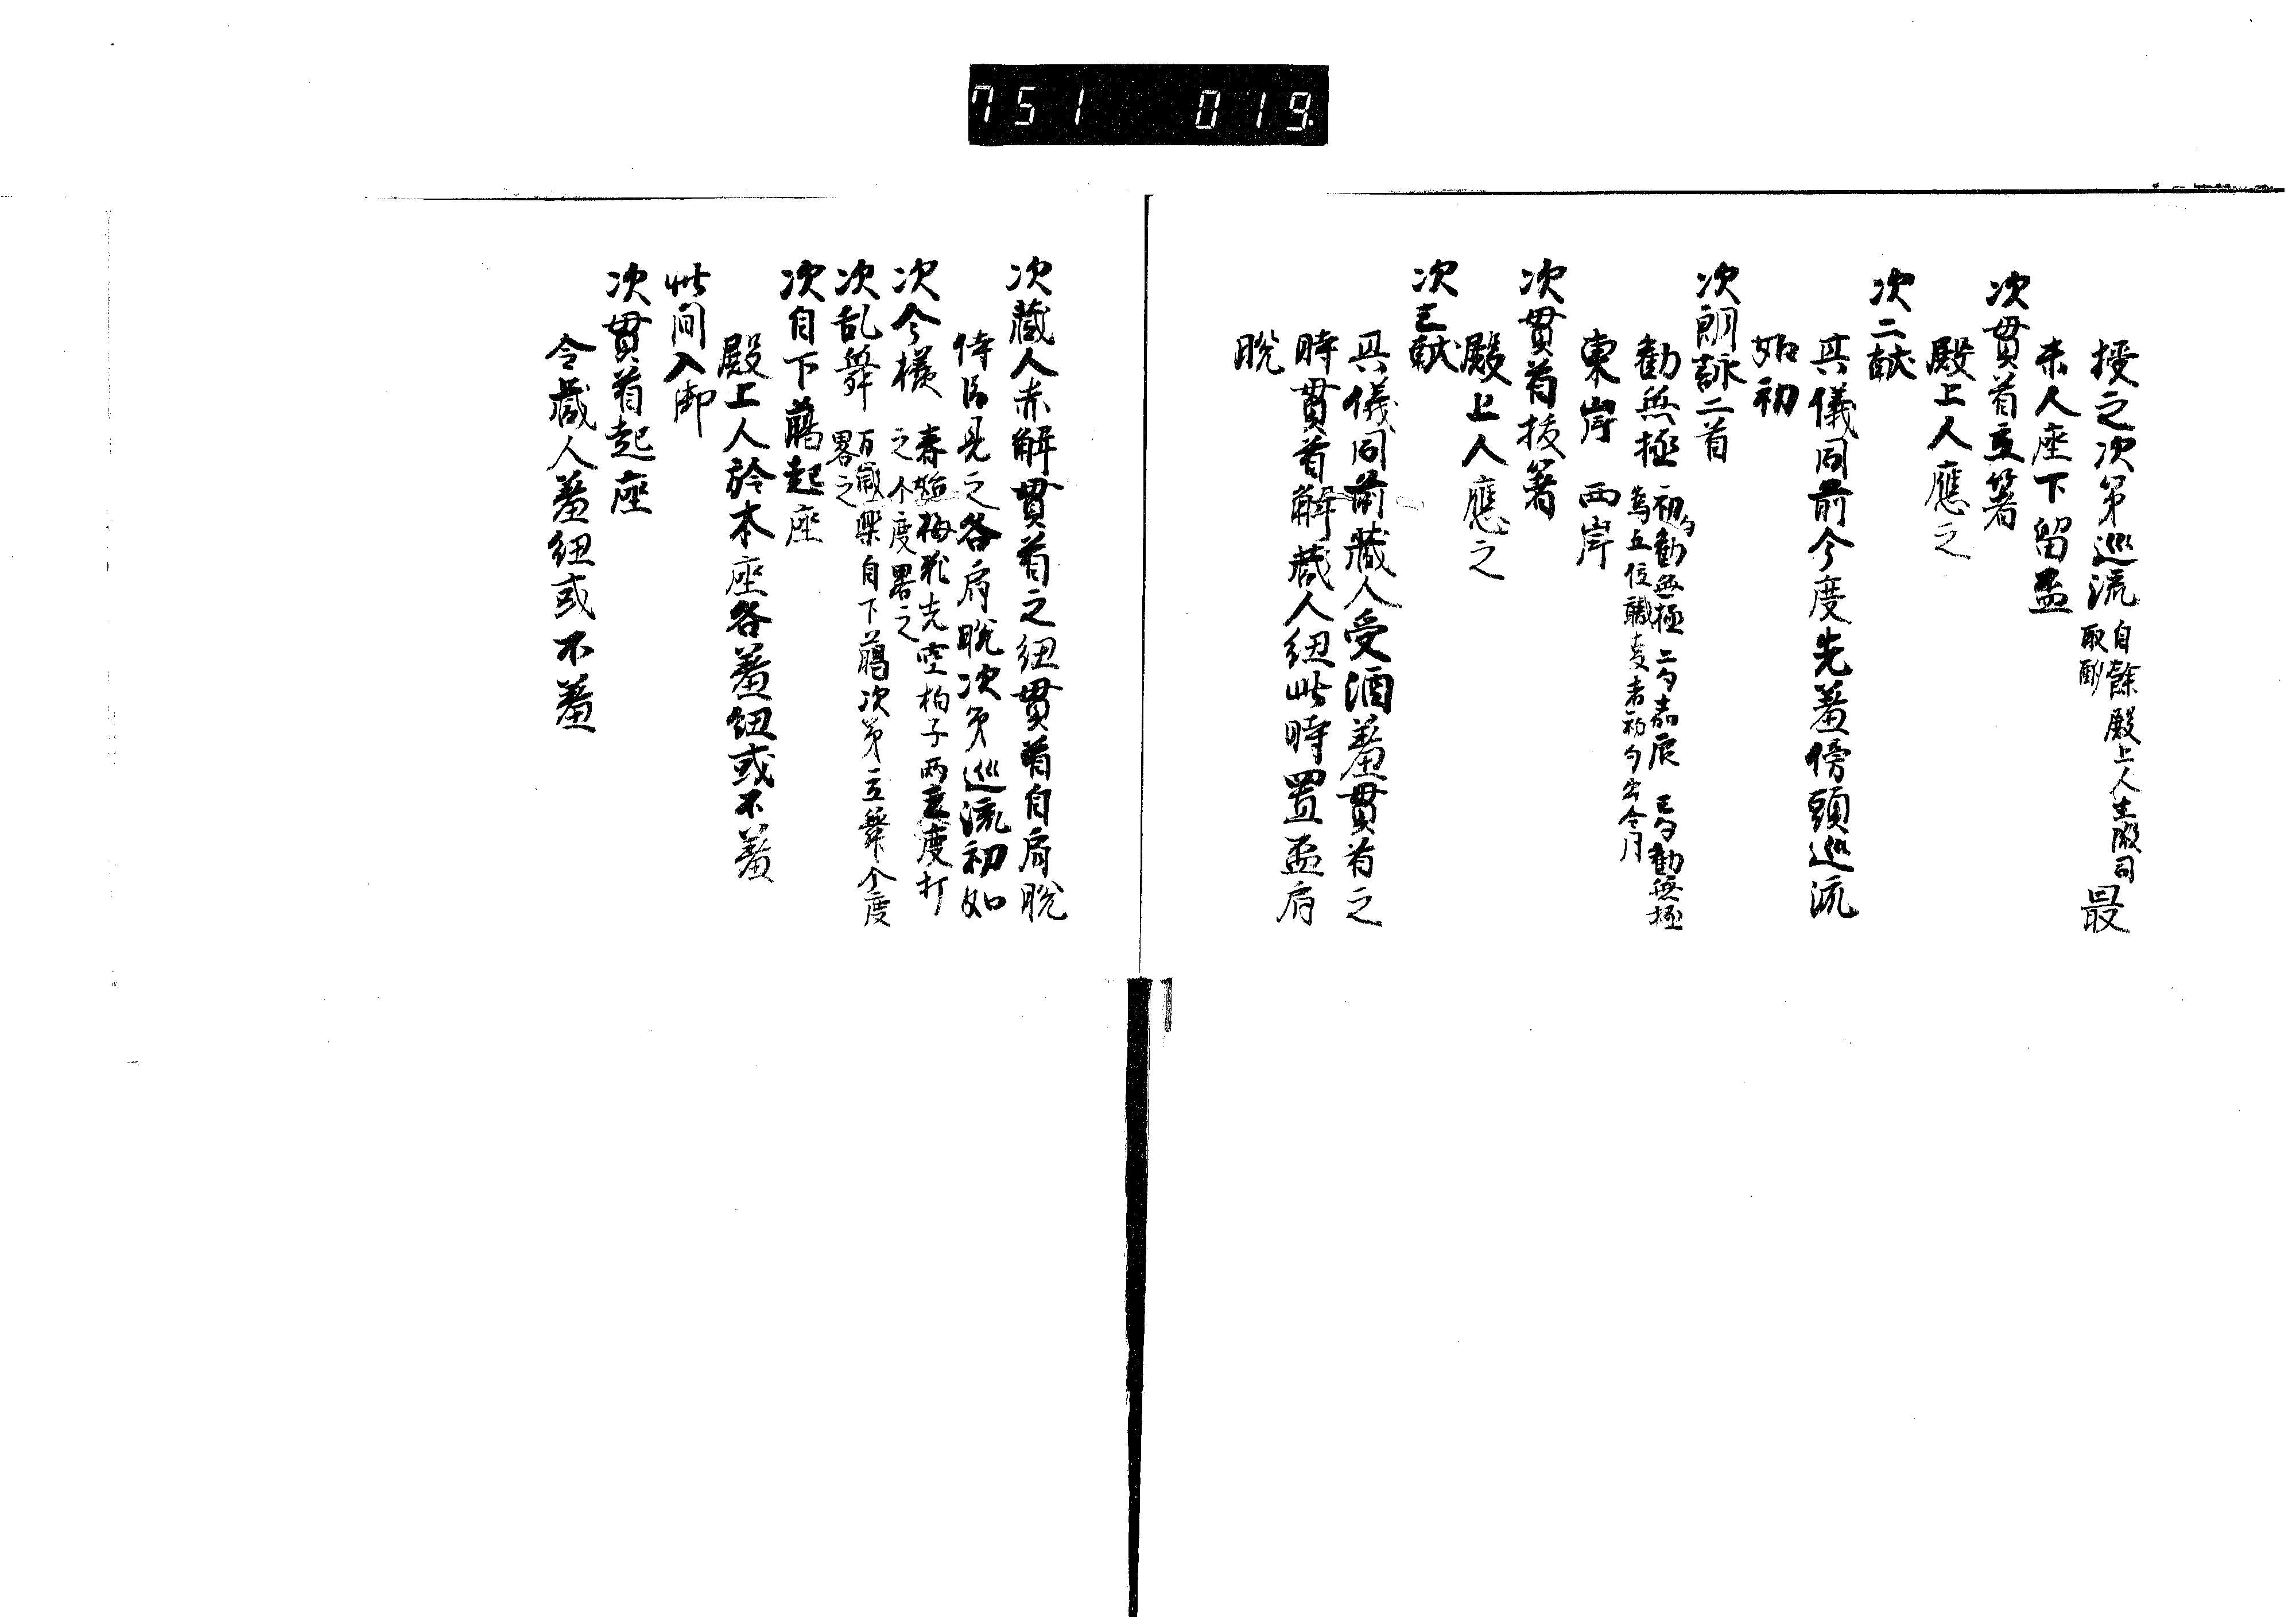 751 019
授之次第巡流 自餘殿上人主殿司 取酌 最
末人座下留盃
次貫首立箸
殿上人應之
次二献
其儀同前今度先羞傍頭巡流
如初
次朗詠二首
勧無極 初句勧無極 二句嘉辰 三句勧無極
為五位職事者初句出令月
東岸 西岸
次貫首抜箸
殿上人應之
次三献
其儀同前蔵人受酒羞貫首之
時貫首解蔵人紐此時置盃肩
脱
次蔵人亦解貫首之紐貫首自肩脱
侍臣見之各肩脱次第巡流初如
次今様 春始梅花先空拍子両三度打
之 今度畧之
次乱舞 万歳樂自下﨟次第立舞今度
畧之
次自下﨟起座
殿上人於本座各羞紐或不羞
此間入御
次貫首起座
令蔵人羞紐或不羞